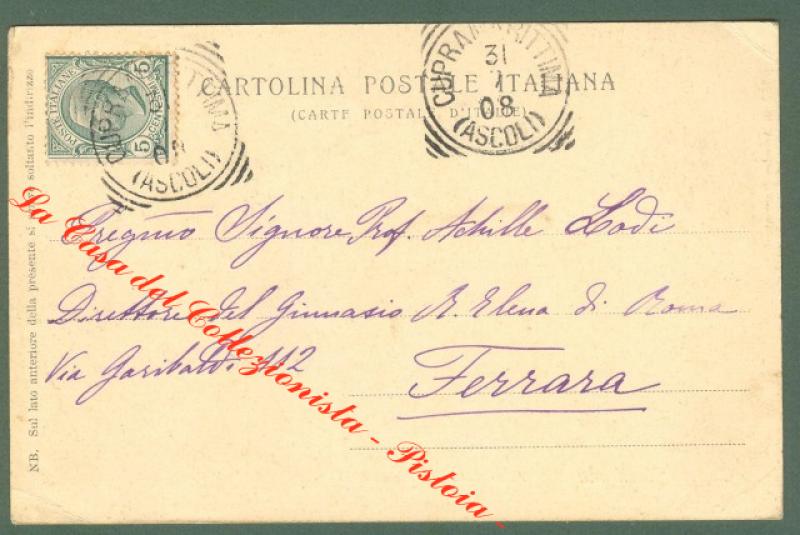 CARTOLINA POSTALE ITALIANA
(CARTE POSTALE D'ITALIE)
POSTE ITALIANE
5 CENT. 5
CUPRAMARITTIMA
(ASCOLI)
08
CUPRAMARITTIMA
31
08
(ASCOLI)
Egregmo Signore Prof. Achille Lodi
Direttore del Ginnasio R. Elena di Roma
Via Garibaldi 112
Ferrara
NB. Sul lato anteriore della presente si soltanto l'indirizzo
La Casa del Collezionista - Pistoia -